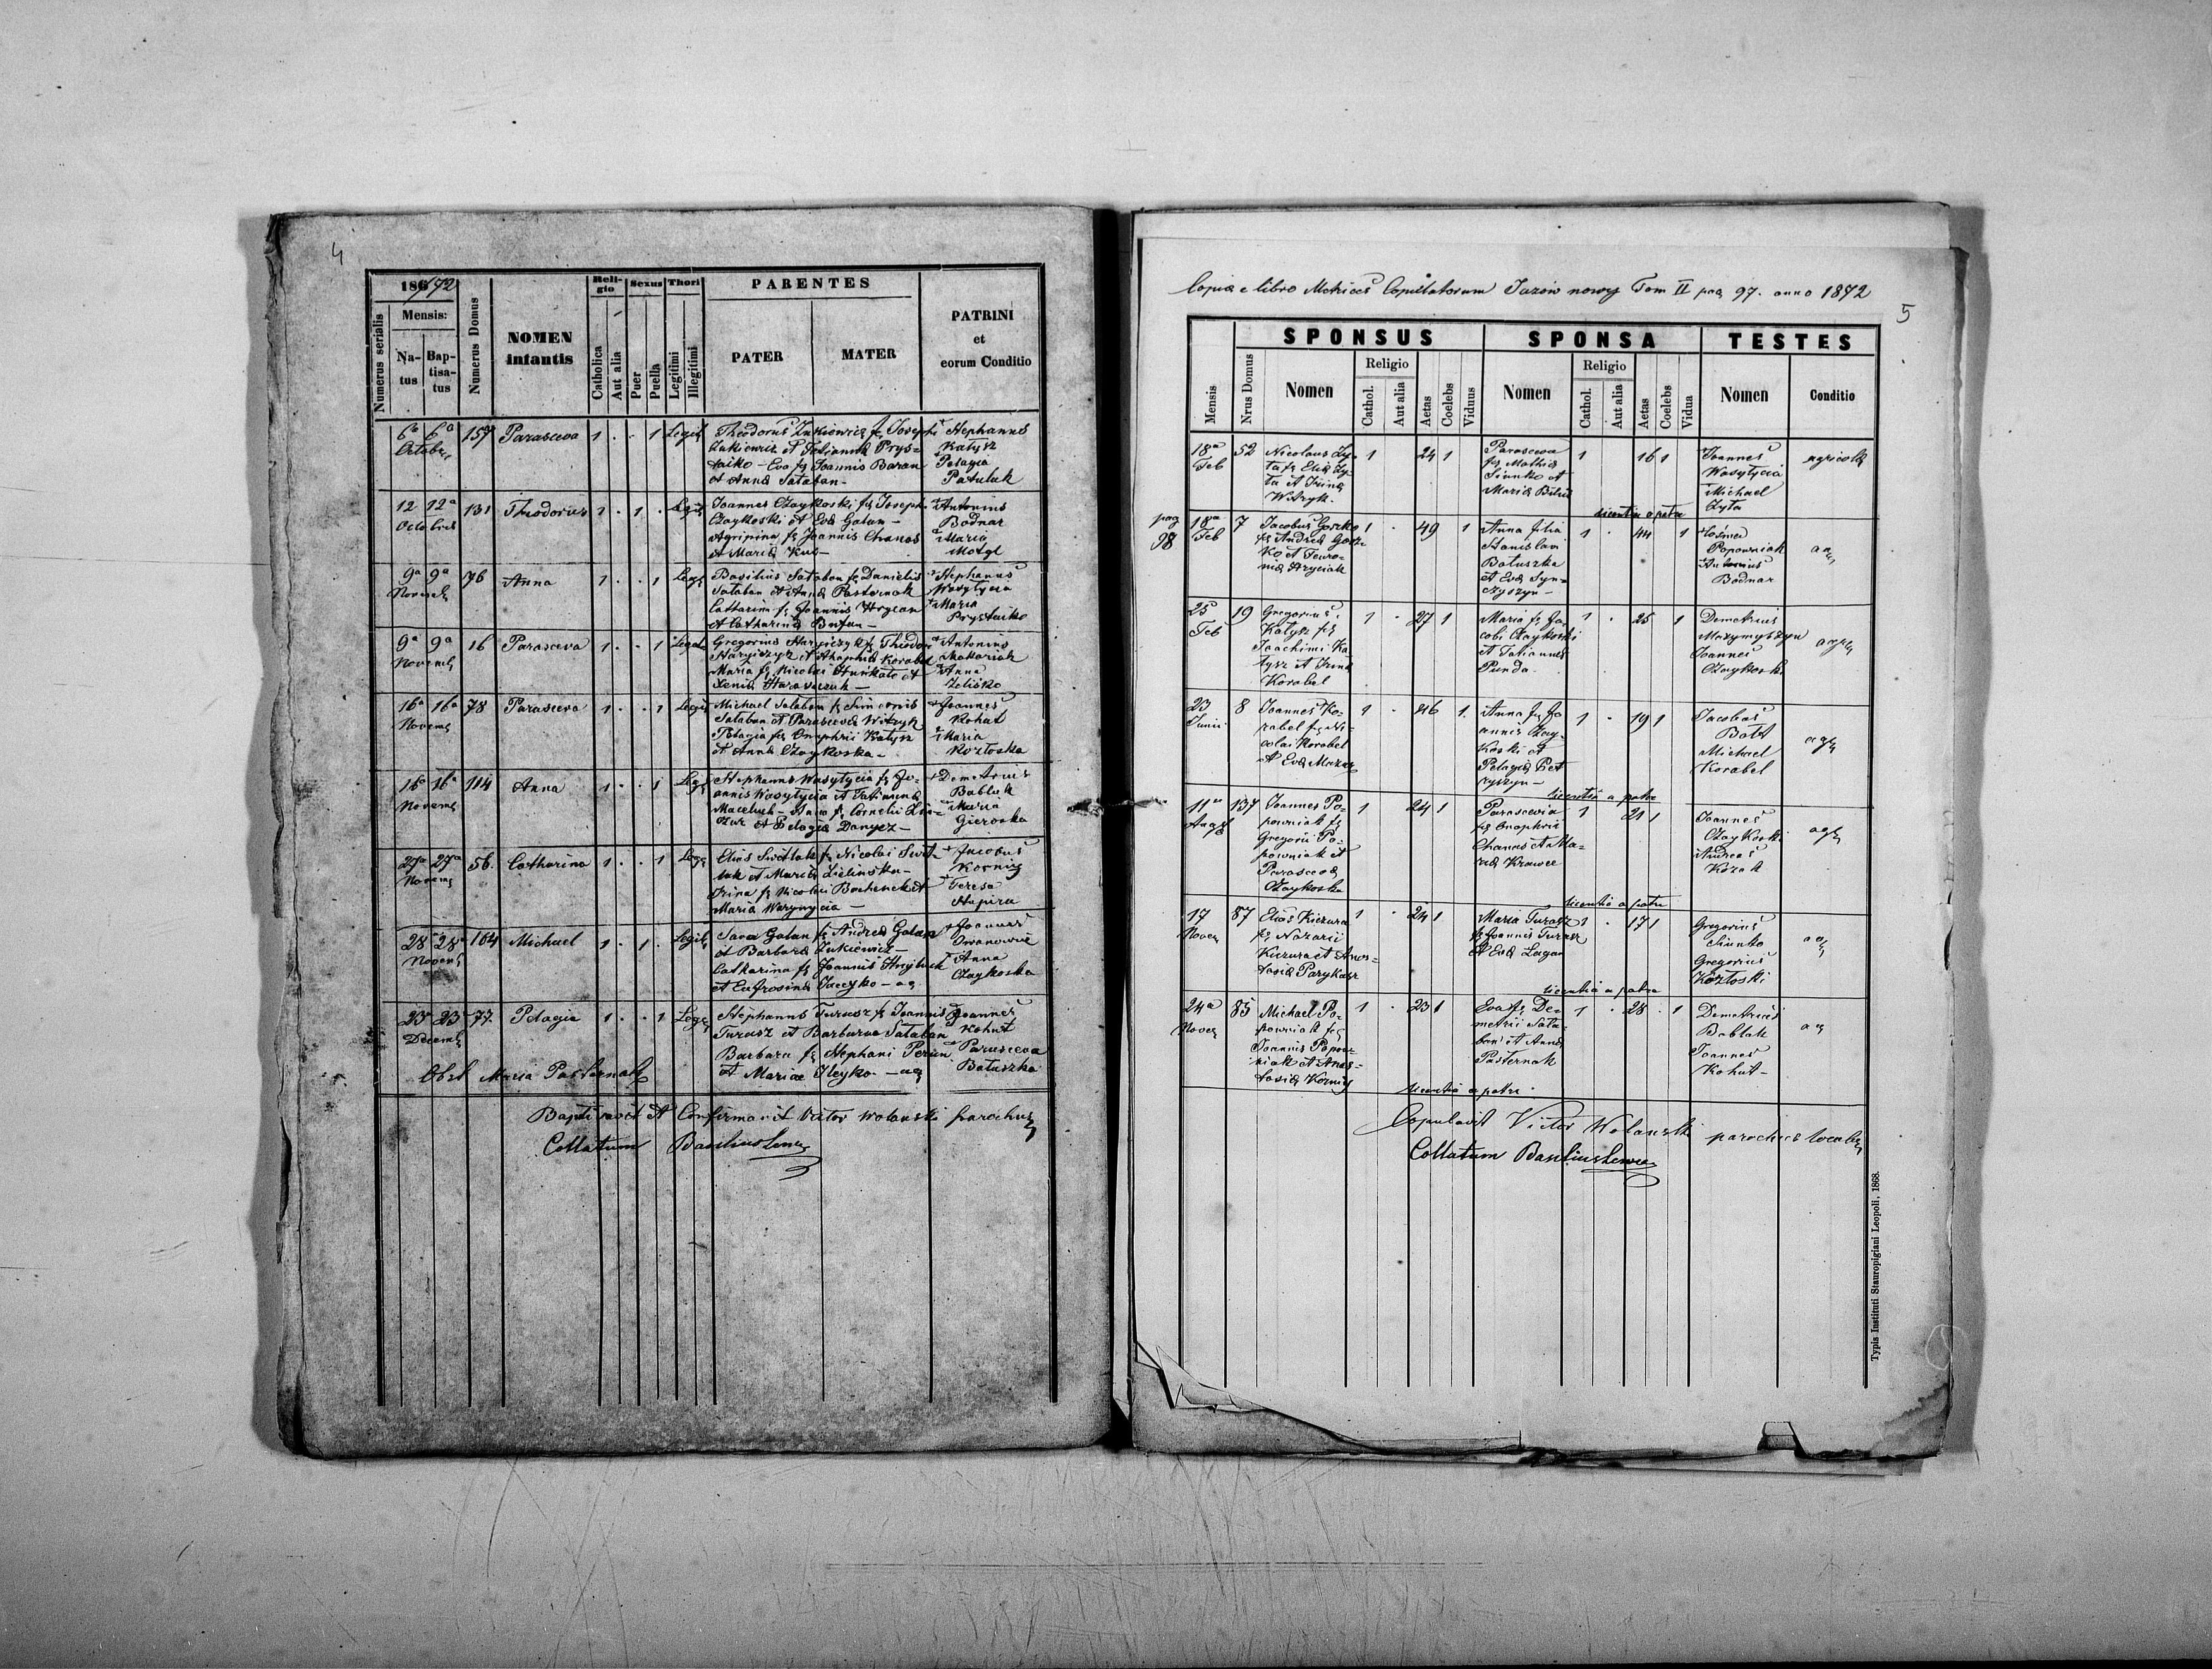 4
186 1872
Numerus serialis
Mensis:
Na-
tus
Bap-
tisa-
tus
Numerus Domus
NOMEN
infantis
Reli-
gio
Catholica
Aut alia
Sexus
Puer
Puella
Thori
Legitimi
Illegitimi
PARENTES
PATER
MATER
PATRINI
et
eorum Conditio
6a 6a 157 Parasceva 1 . . 1 Legit
Octobr
Theodorus Zukiewicz fs Josephi
Zukiewicz et Tatianna Prys-
taiko - Eva fs Joannis Baran
et Anna Sataban -
Stephanus
Katysz
Pelagia
Patuluk
12 12a 131 Theodorus 1 . 1 . Legit
Octobris
Joannes Czaykoski fs Joseph
Czaykoski et Eva Golan -
Agripina fs Joannis Chanas
et Maria Kus -
Antonius
Bodnar
Maria
Motyl
9a 9a 76 Anna 1 . . 1 Leg
Novemb
Basilius Sataban fs Danielis
Sataban et Anna Pasternak
Catharina fs Joannis Hrycan
et Catharina Butan -
Stephanus
Wasytycia
Maria
Prystaiko
9a 9a 16 Parasceva 1 . . 1 Legit
Novemb
Gregorius Harpiczyk fs Theodori
Maria fs Nicolai
Xenia
Antonius
Makariak
Anna
Zelisko
16a 16a 78 Parasceva 1 . . 1 Legit
Novemb
Michael Sataban fs Simeonis
Sataban et Parasceva Witzyk
Pelagia fs Onuphrii Katysz
et Anna Czaykoska -
Joannes
Kohut
Maria
Koztoska
16a 16a 114 Anna 1 . . 1 Leg
Novemb
Stephanus Wasytycia fs Jo-
annis Wasytycia et Tatianna
Maceluch - Anna fs Cornelii
et Pelagia Danycz -
Demetrius
Bablak
Maria
Gieroska
27a 27a 56. Catharina 1 . . 1 Leg
Novemb
Elias Switlak fs Nicolai Swit-
lak et Maria Zielinska -
Irina fs Nicolai
Maria Warynycia -
Jacobus
Korniy
Teresa
Stupira
28a 28a 164 Michael 1 . 1 . Legit
Novemb
Sava Golan fs Andrea Golan
et Barbara Zukiewicz -
Catharina fs Joannis
et Eufrosina Jaceyko - ag
Joannes
Iwanowicz
Anna
Czaykoska
23a 23a 77. Pelagia 1 . . 1 Leg
Decemb
Stephanus Turasz fs Joannis
Turasz et Barbara Sataban
Barbara fs Stephani Perun
et Mariae Fleyko - ag
Joannes
Kohut
Parasceva
Batuszka
Obst Maria Pasternak
Baptisavit et Confirmavit Victor Wolanski parochus
Collatum Basilius
5
Copia e libro Metrices Copulatorum Jazow nowy Tom II pag 97. anno 1872
Mensis
SPONSUS
Nrus Domus
Nomen
Religio
Cathol.
Aut alia
Aetas
Coelebs
Viduus
SPONSA
Nomen
Religio
Cathol.
Aut alia
Aetas
Coelebs
Vidua
TESTES
Nomen
Conditio
18a
Feb
52
Nicolaus Zy-
ta fs Elia Zy-
ta et Irina
Witzyk.
1 24 1
Parasceva
fs Mathia
Siunko et
Maria
1 16 1
Joannes
Wasytycia
Michael
Zyta
agricola
licentia a patre
pag
98
18a
Feb
7
Jacobus Goszko
fs Andrea Gosz-
ko et Teuro-
nia Hryciak
1 . 49 1
Anna filia
Stanislavi
Batuszka
et Eva Syn-
czyszyn -
1 . 44 1
Cosma
Popowniak
Antonius
Bodnar
ag
25
Feb
19
Gregorius
Katysz fs
Joachimi Ka-
tysz et Irina
Korabel
1 . 27 1
Maria fs Ja-
cobi Czaykoski
et Tatianna
Punda.
1 . 25 1
Demetrius
Maxymyszyn
Joannes
Czaykoski
agr
23
Junii
8
Joannes Ko-
rabel fs Ni-
colai Korabel
et Eva Mazur
1 . 46 1.
Anna fs Jo-
annis Czay-
koski et
Pelagia Pet-
ryszyn -
1 . 19 1
Jacobus
Batt
Michael
Korabel
agr
licentia a patre
11a
Augt
137
Joannes Po-
powniak fs
Gregorii Po-
powniak et
Parasceva
Czaykoska
1 24 1
Parascevia
fs Onophrii
Chanas et Ma-
ria Krawec
1 21 1
Joannes
Czaykoski
Andreas
Kozak
agr
licentia a patre
17
Novem
87
Elias Kiczura
fs Nazarii
Kiczura et Anas-
tasia Parykasz
1 . 24 1
Maria Turasz
fs Joannis Turasz
et Eva Lagan
1 . 17 1
Gregorius
Siunko
Gregorius
Koztoski
ag
licentia a patre
24a
Novem
85
Michael Po-
powniak fs
Joannis Popow-
niak et Anas-
tasia Korniy
1 . 23 1
Eva fs De-
metrii Sata-
ban et Anna
Pasternak
1 . 28 . 1
Demetrius
Bablak
Joannes
Kohut -
ag
licentia a patre
Copulavit Victor Wolanski parochus localis
Collatum Basilius
Typis Instituti Stauropigiani Leopoli, 1868.